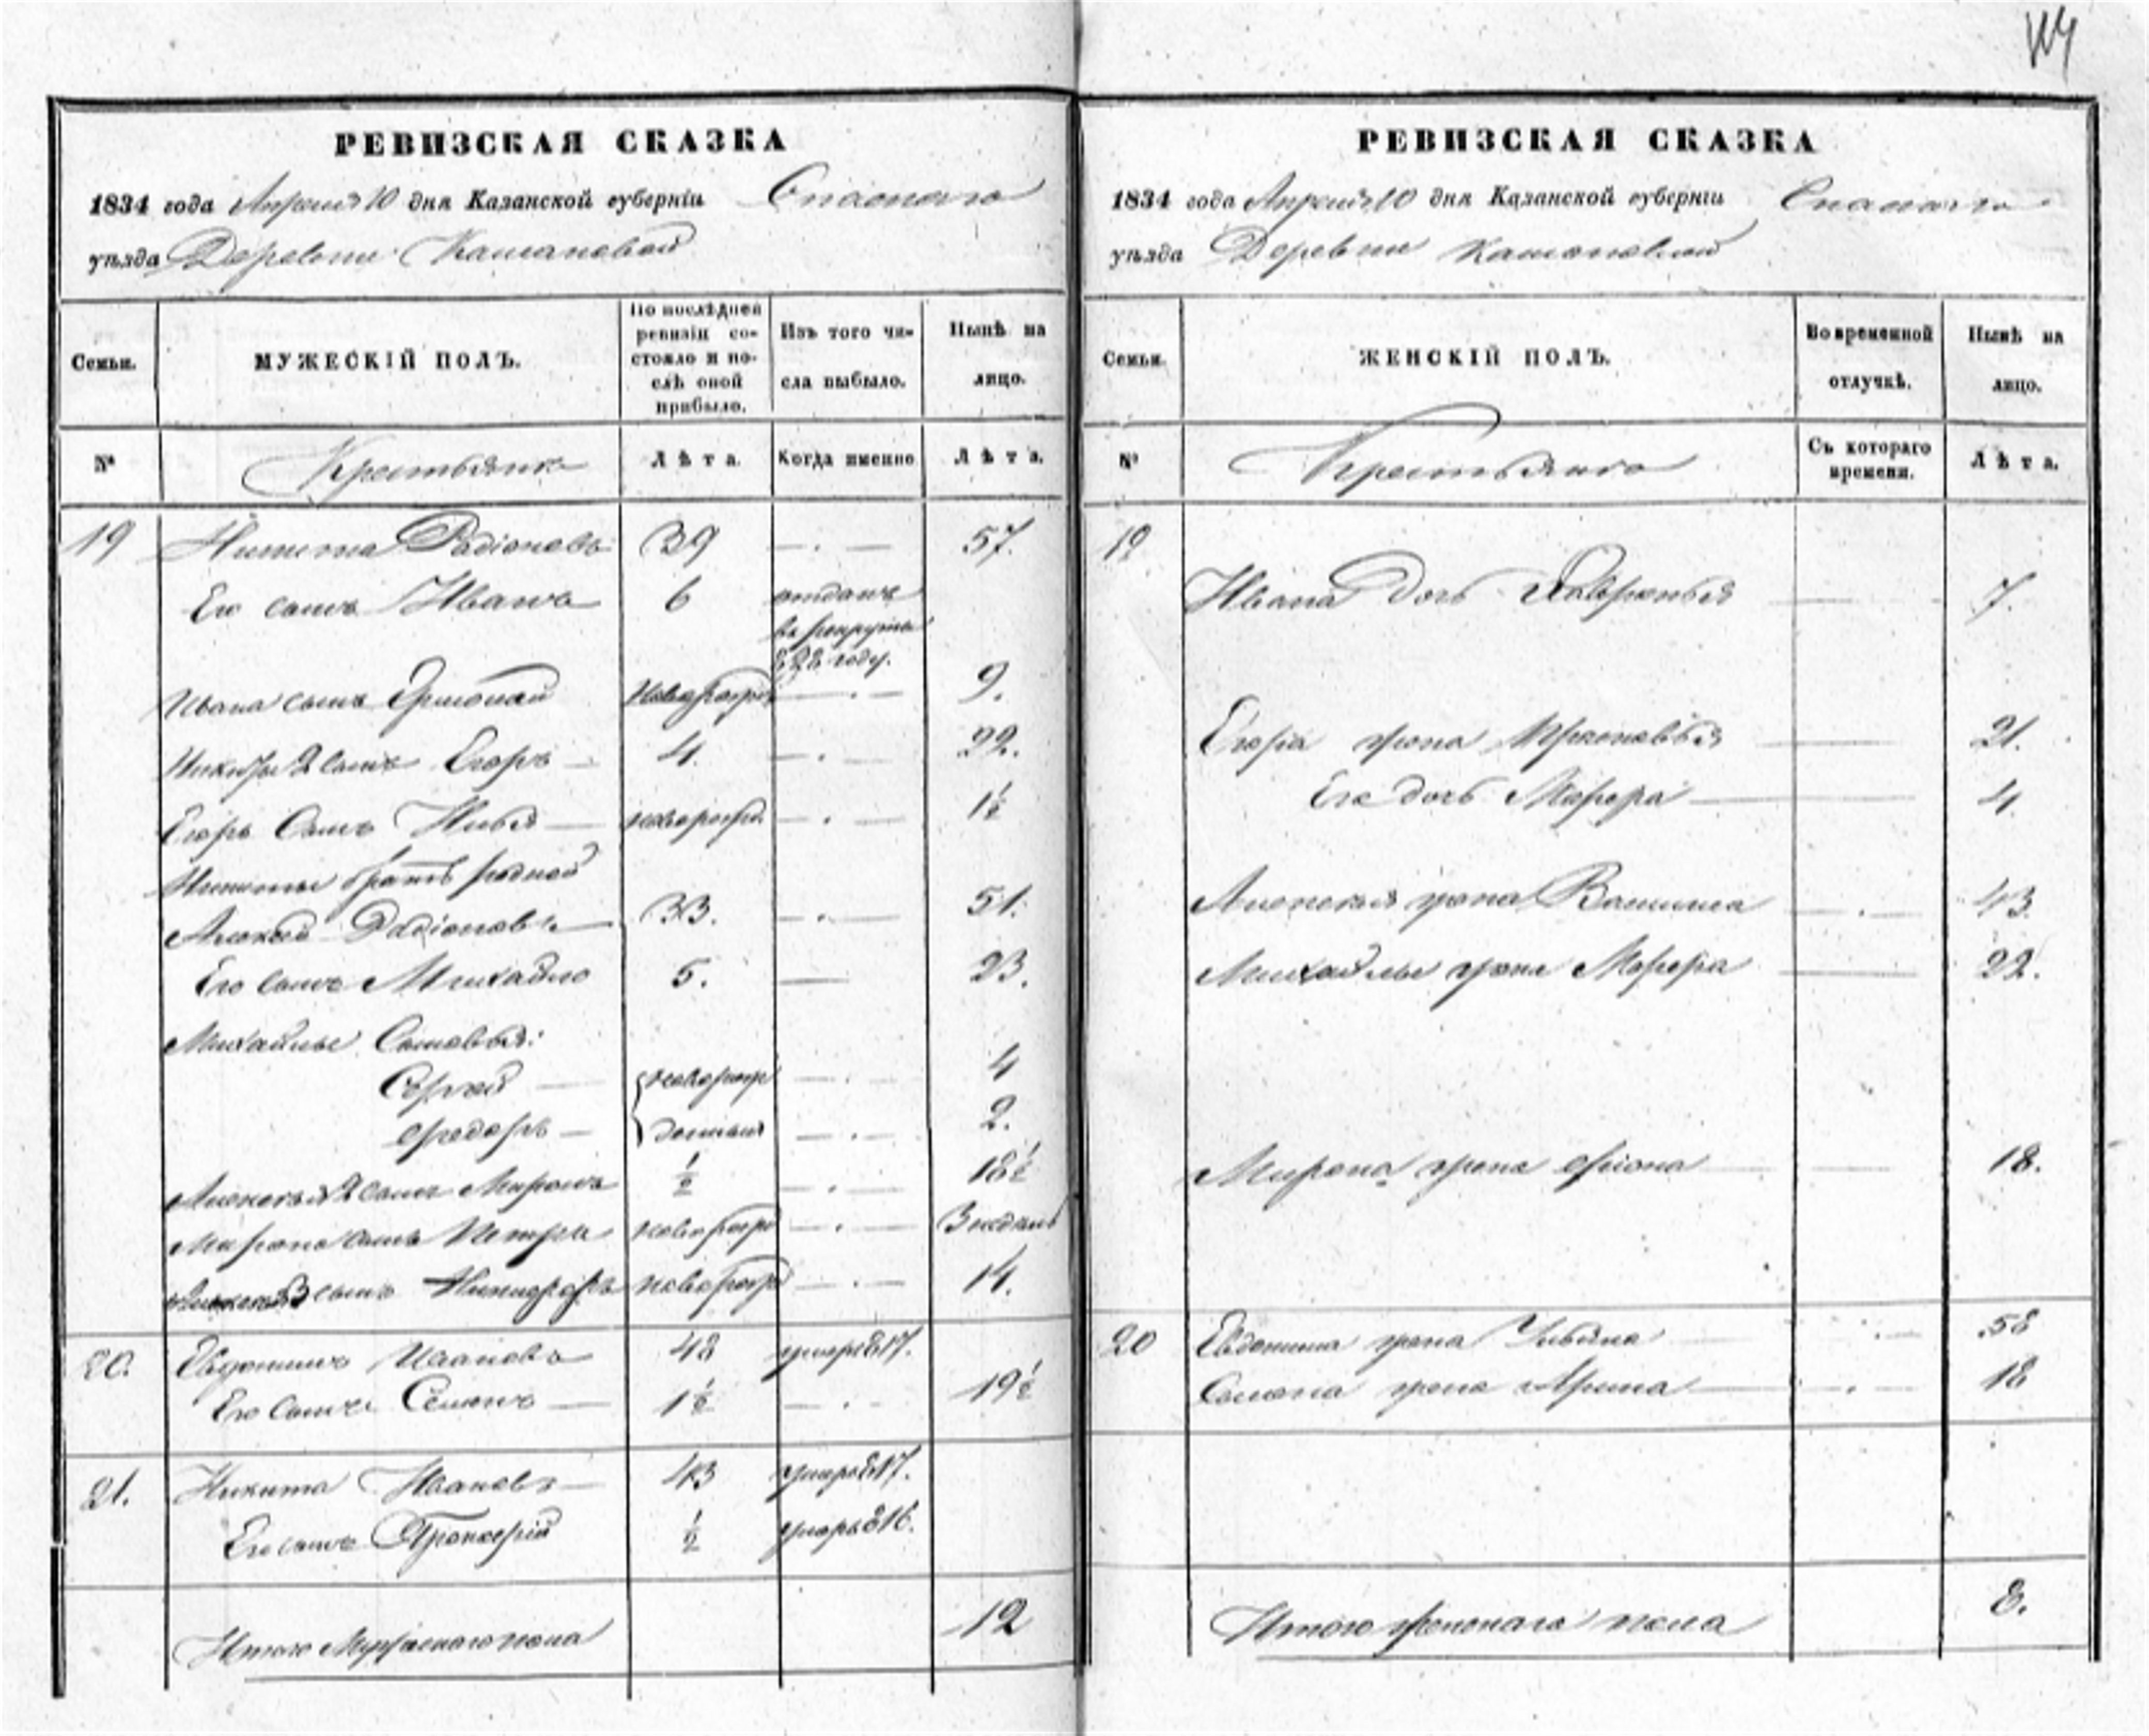 РЕВИЗСКАЯ СКАЗКА
1834 года Апреля 10 дня Казанской губерніи Спаскаго
уѣзда Деревни Кашановой
Семьи. МУЖЕСКІЙ ПОЛЪ. По послѣдней ревизіи состояло и послѣ оной прибыло. Изъ того числа выбыло. Нынѣ на лицо.
№ Крестьянъ Лѣта. Когда именно Лѣта.
19 Никита Радіоновъ 39 — . — 57.
Его сынъ Иванъ 6 отданъ
въ рекруты
828 году.
Ивана сынъ новорожд — . — 9.
Никиты 2 сынъ Егоръ — 4. — . — 22.
Егоръ Сынъ — новорожд. — . — 1½
Никиты братъ родной
Алексѣй Радіоновъ — 33. — . — 51.
Его сынъ Михайло 5. — 23.
Михайлы Сыновья:
Сергей — новорож — . — 4
Федоръ — денныя — . — 2.
Алексея 2 сынъ Миронъ ½ — . — 18½
Мирона сынъ Петръ новорожд — . — 3 недель
Алексея 3 сынъ Никифоръ новорожд — . — 14.
20. Евдокимъ Ивановъ 48 умеръ 817.
Его сынъ Семенъ — 1½ — . — 19½
21. Никита Ивановъ — 43 умеръ 817.
Его сынъ Прокофій ½ умеръ 816.
Итого Мужескаго пола 12
РЕВИЗСКАЯ СКАЗКА
1834 года Апреля 10 дня Казанской губерніи Спаскаго
уѣзда Деревни Кашановой
Семьи. ЖЕНСКІЙ ПОЛЪ. Во временной отлучкѣ. Нынѣ на лицо.
№ Крестьянъ Съ котораго времени. Лѣта.
19
Ивана дочь — 7.
Егора жена — 21.
Его дочь Марфа — 4.
Алексея жена — . — 43.
Михайлы жена Марфа — 22.
Мирона жена — 18.
20 Евдокима жена Ульяна — . — 58
Семена жена Арина — . — 18
Итого женскаго пола 8.